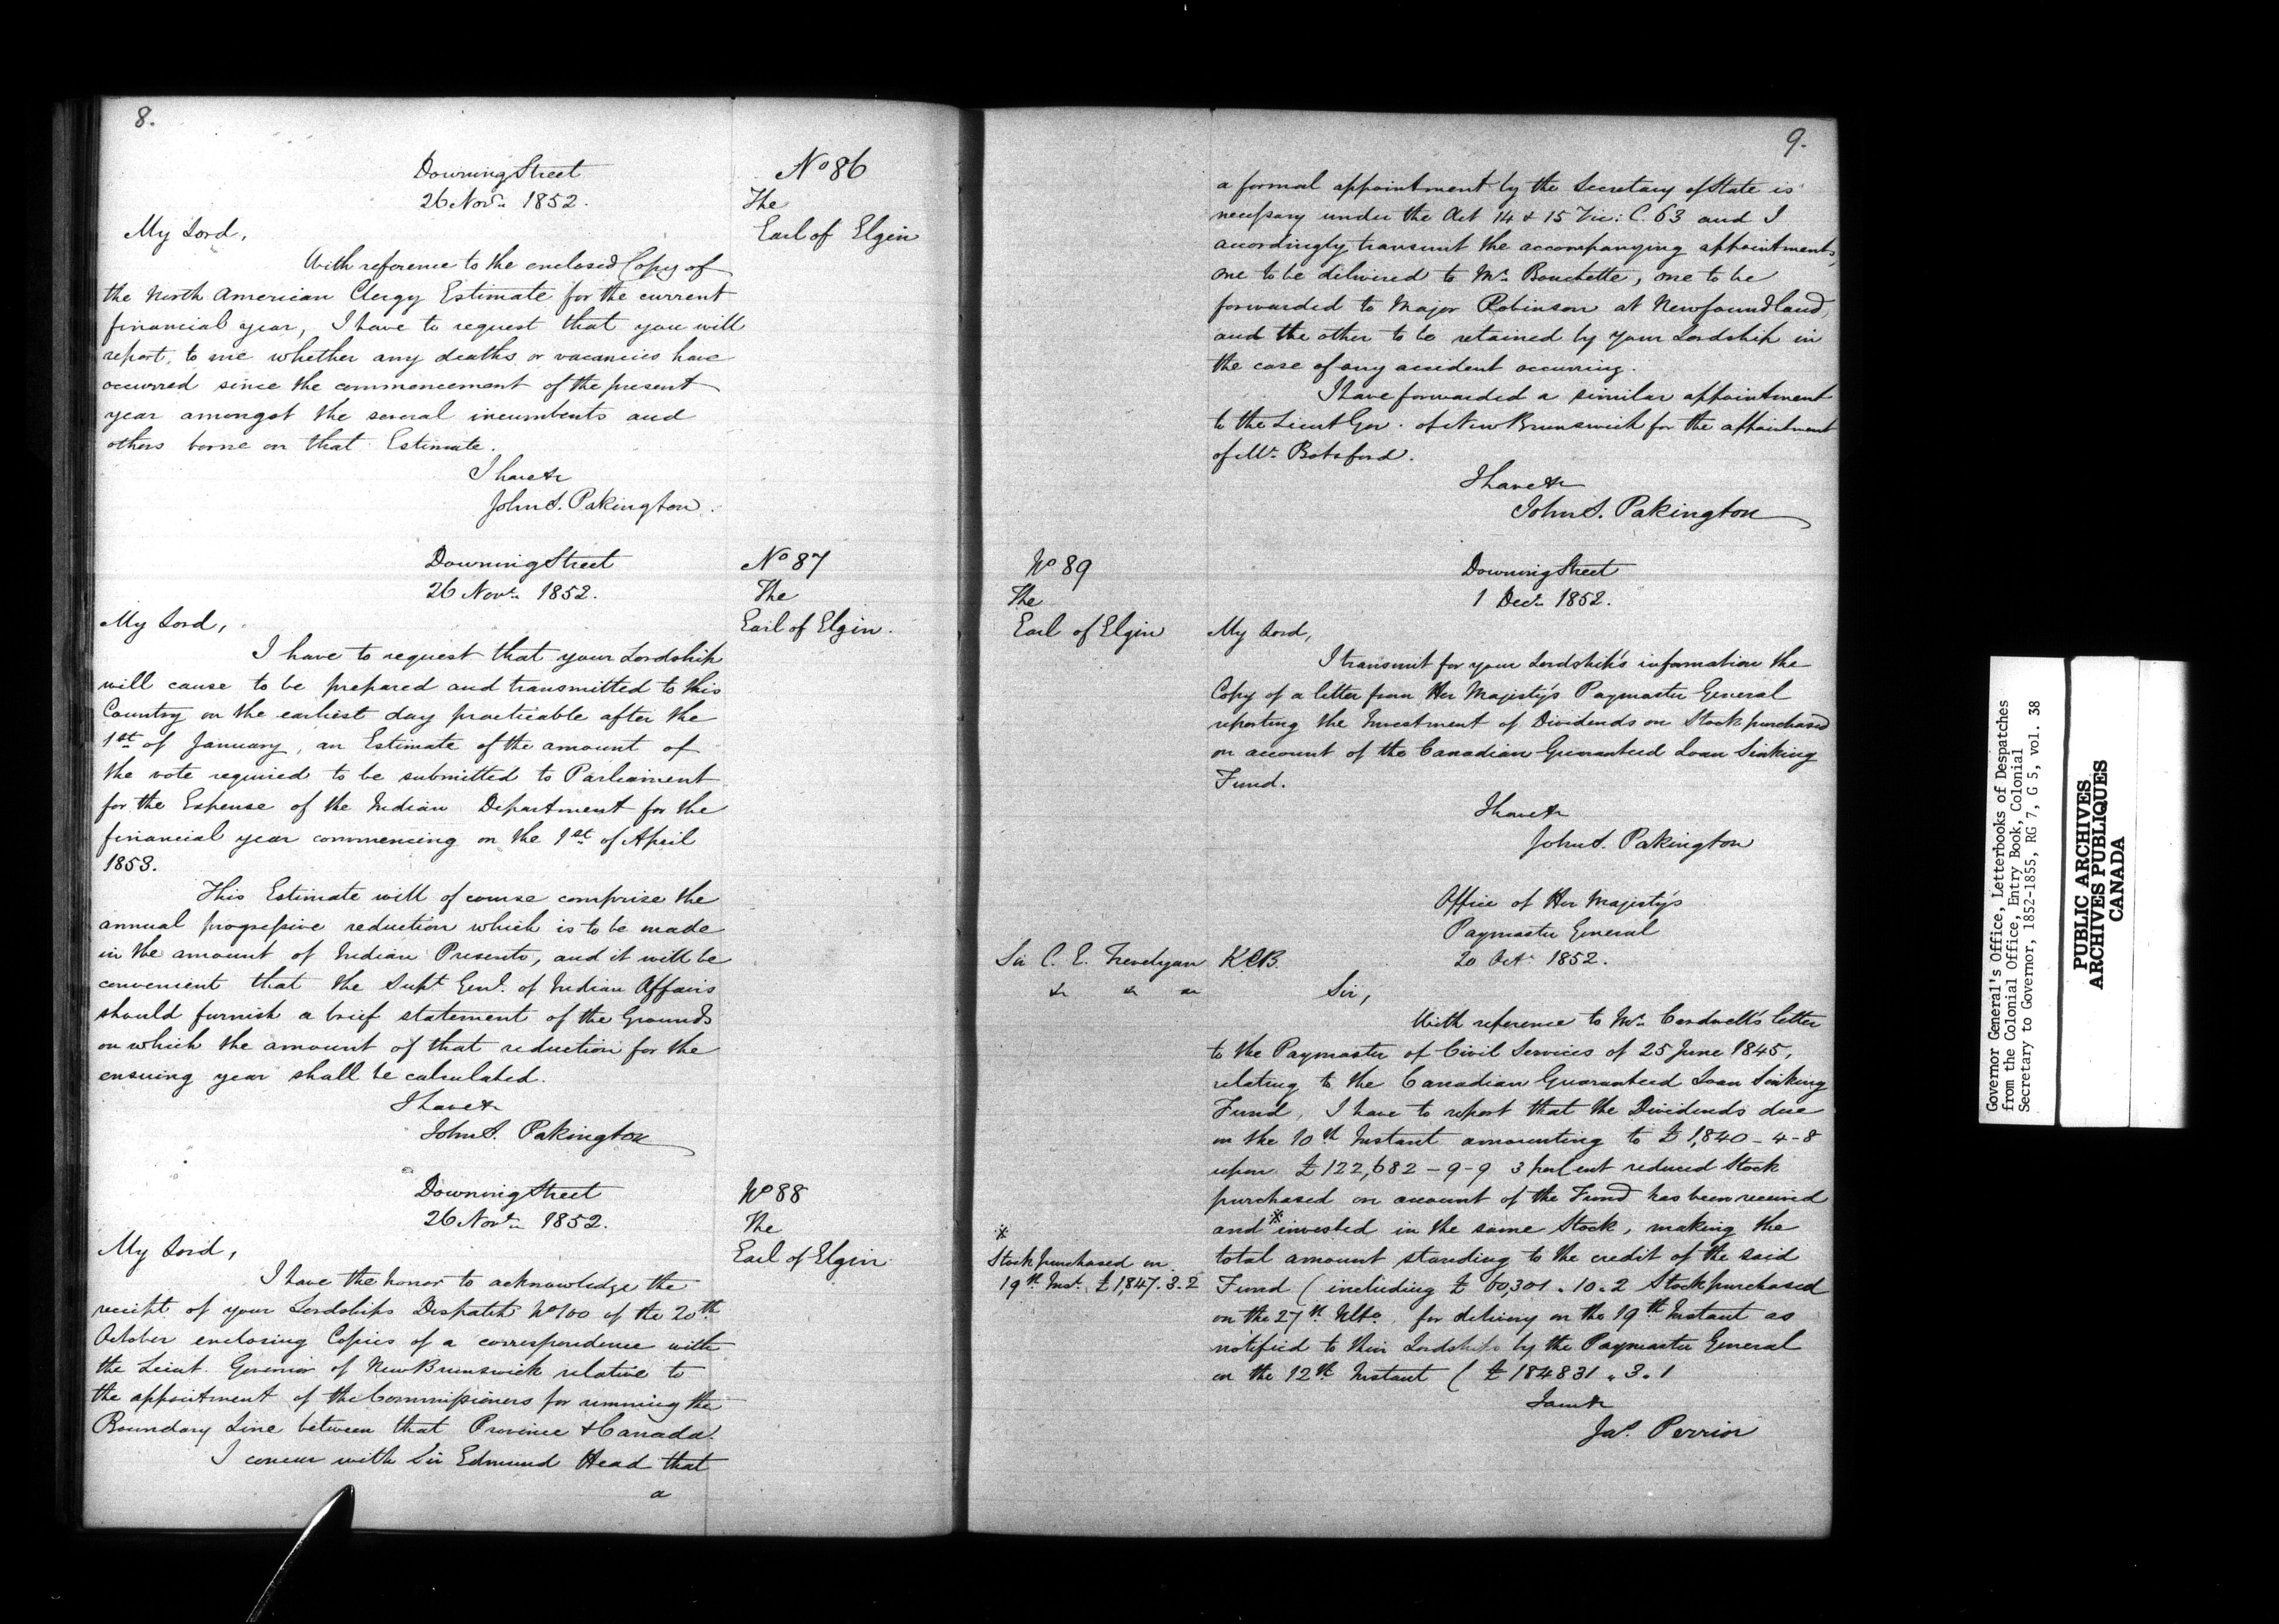 8.
Downing Street
26 Novr. 1852.
No 86
The
Earl of Elgin
My Lord,
With reference to the enclosed Copy of
the North American Clergy Estimate for the current
financial year, I have to request that you will
report to me whether any deaths or vacancies have
occurred since the commencement of the present
year amongst the several incumbents and
others borne on that Estimate.
I have &c
John S. Pakington.
Downing Street
26 Novr. 1852.
No 87
The
Earl of Elgin.
My Lord,
I have to request that your Lordship
will cause to be prepared and transmitted to this
Country on the earliest day practicable after the
1st of January, an Estimate of the amount of
the vote required to be submitted to Parliament
for the Expense of the Indian Department for the
financial year commencing on the 1st of April
1853.
This Estimate will of course comprise the
annual progressive reduction which is to be made
in the amount of Indian Presents, and it will be
convenient that the Supt Genl. of Indian Affairs
should furnish a brief statement of the Grounds
on which the amount of that reduction for the
ensuing year shall be calculated.
I have &c
John S. Pakington
Downing Street
26 Novr. 1852.
No 88
The
Earl of Elgin.
My Lord,
I have the honor to acknowledge the
receipt of your Lordships Despatch No 100 of the 20th
October enclosing Copies of a correspondence with
the Lieut. Governor of New Brunswick relative to
the appointment of the Commissioners for running the
Boundary Line between that Province & Canada.
I concur with Sir Edmund Head that
a
9.
a formal appointment by the Secretary of State is
necessary under the Act 14 & 15 Vic: C. 63 and I
accordingly transmit the accompanying appointments,
one to be delivered to Mr. Bouchette, one to be
forwarded to Major Robinson at Newfoundland,
and the other to be retained by your Lordship in
the case of any accident occurring.
I have forwarded a similar appointment
to the Lieut Gov. of New Brunswick for the appointment
of Mr. Botsford.
I have &c
John S. Pakington
No 89
The
Earl of Elgin
Downing Street
1 Decr. 1852.
My Lord,
I transmit for your Lordship's information the
Copy of a letter from Her Majesty's Paymaster General
reporting the Investment of Dividends on Stock purchased
on account of the Canadian Guaranteed Loan Sinking
Fund.
I have &c
John S. Pakington
Office of Her Majesty's
Paymaster General
20 Oct. 1852.
Sir C. E. Trevelyan KCB.
&c &c &c
Sir,
With reference to Mr. Cardwell's letter
to the Paymaster of Civil Services of 25 June 1845,
relating to the Canadian Guaranteed Loan Sinking
Fund, I have to report that the Dividends due
on the 10th Instant amounting to £1,840 - 4 - 8
upon £122,682 - 9 - 9 3 per Cent reduced Stock
purchased on account of the Fund has been received
and * invested in the same Stock, making the
total amount standing to the credit of the said
Fund (including £60,301 . 10 . 2 Stock purchased
on the 27th Ulto. for delivery on the 19th Instant as
notified to their Lordships by the Paymaster General
on the 12th Instant ( £184831 . 3 . 1
I am &c
Jas. Perrior
*
Stock purchased on
19th Inst. £1,847. 3. 2
Governor General's Office, Letterbooks of Despatches
from the Colonial Office, Entry Book, Colonial
Secretary to Governor, 1852-1855, RG 7, G 5, vol. 38
PUBLIC ARCHIVES
ARCHIVES PUBLIQUES
CANADA